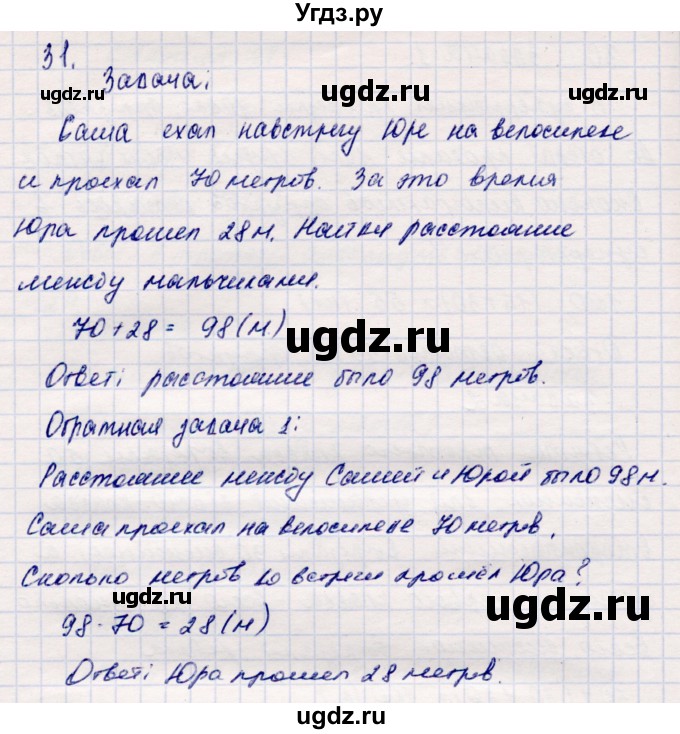 Угдз.ру
31.
Задача:
ugdz.ru ugdz.ru
Саша ехал навстречу Юре на велосипеде
и проехал 70 метров. За это время
ugdz.ru ugdz.ru
Юра прошел 28 м. Найти расстояние
между мальчиками.
70 + 28 = 98 (м)
ugdz.ru
Ответ: расстояние было 98 метров.
Обратная задача 1:
Расстояние между Сашей и Юрой было 98 м.
Саша проехал на велосипеде 70 метров.
Сколько метров до встречи прошел Юра?
ugdz.ru ugdz.ru
98 - 70 = 28 (м)
Ответ: Юра прошел 28 метров.
ugdz.ru